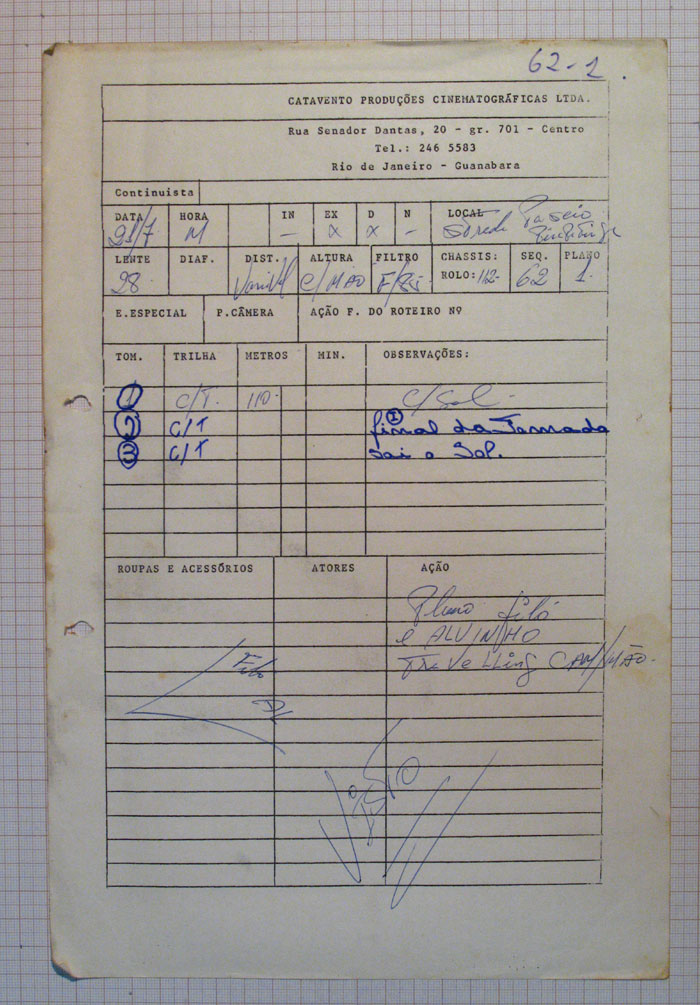 62-1.
CATAVENTO PRODUÇÕES CINEMATOGRÁFICAS LTDA.
Rua Senador Dantas, 20 - gr. 701 - Centro
Tel.: 246 5583
Rio de Janeiro - Guanabara
Continuista
DATA HORA IN EX D N LOCAL Passeio
M - X X -
LENTE DIAF. DIST. ALTURA FILTRO CHASSIS: SEQ. PLANO
28 C/MÃO ROLO: 112- 62 1.
E.ESPECIAL P.CÂMERA AÇÃO F. DO ROTEIRO Nº
TOM. TRILHA METROS MIN. OBSERVAÇÕES:
1 C/T. 110- C/Sol.
2 C/T final da Tomada
3 C/T sai o Sol.
ROUPAS E ACESSÓRIOS ATORES AÇÃO
Plano Filó
e ALVINHO
TraveLLing CAM/MÃO.
Filó